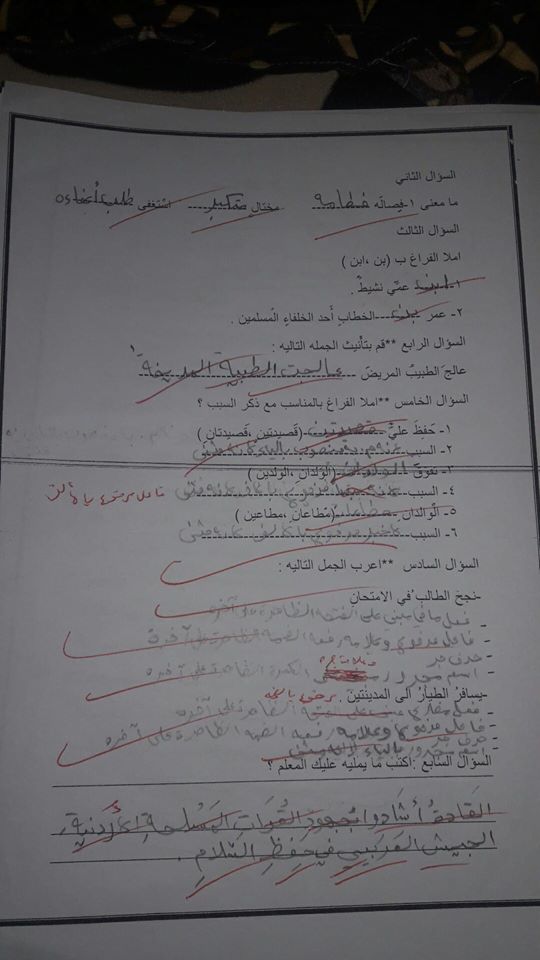 السؤال الثاني
ما معنى ١-فِصاله فطامه مختال متكبر استغفى طلب
السؤال الثالث
املا الفراغ ب (بن ،ابن )
١- ابن عمّي نشيطٌ .
٢- عمر بن الخطابِ أحد الخلفاءِ المسلمين .
السؤال الرابع **قم بتأنيث الجمله التاليه :
عالجَ الطبيبُ المريضَ عالجت الطبيبة المريضة
السؤال الخامس **املا الفراغ بالمناسب مع ذكر السبب ؟
١- حَفظَ عليٌّ قصيدتين (قَصيدتين ،قَصيدتان)
٢- السبب منصوب بالياء
٣- تفوّقَ الوالدان (الوَلدان ،الولَدين)
٤- السبب فاعل مرفوع بالألف
٥- الوالدان مطاعان (مطاعان، مطاعين )
٦- السبب خبر مرفوع بالألف
السؤال السادس **اعرب الجمل التاليه :
-نجحَ الطالبُ في الامتحانِ
- فعل ماضي مبني على الفتحة الظاهرة على آخره
- فاعل مرفوع وعلامة رفعه الضمة الظاهرة على آخره
- حرف جر
- اسم مجرور الكسرة الظاهرة على آخره
-يسافرُ الطيارُ الى المدينتينِ .
- فعل مضارع الظاهرة على آخره
- فاعل مرفوع وعلامة رفعه الضمة الظاهرة على آخره
- حرف جر
- اسم مجرور بالياء لأنه مثنى
السؤال السابع :اكتب ما يمليه عليك المعلم ؟
القادةُ أشادوا بجهودِ القُوَاتِ المَسْلحةِ الأُردنيةِ،
الجيشِ العَرَبيِ في حِفظِ السَّلامِ .